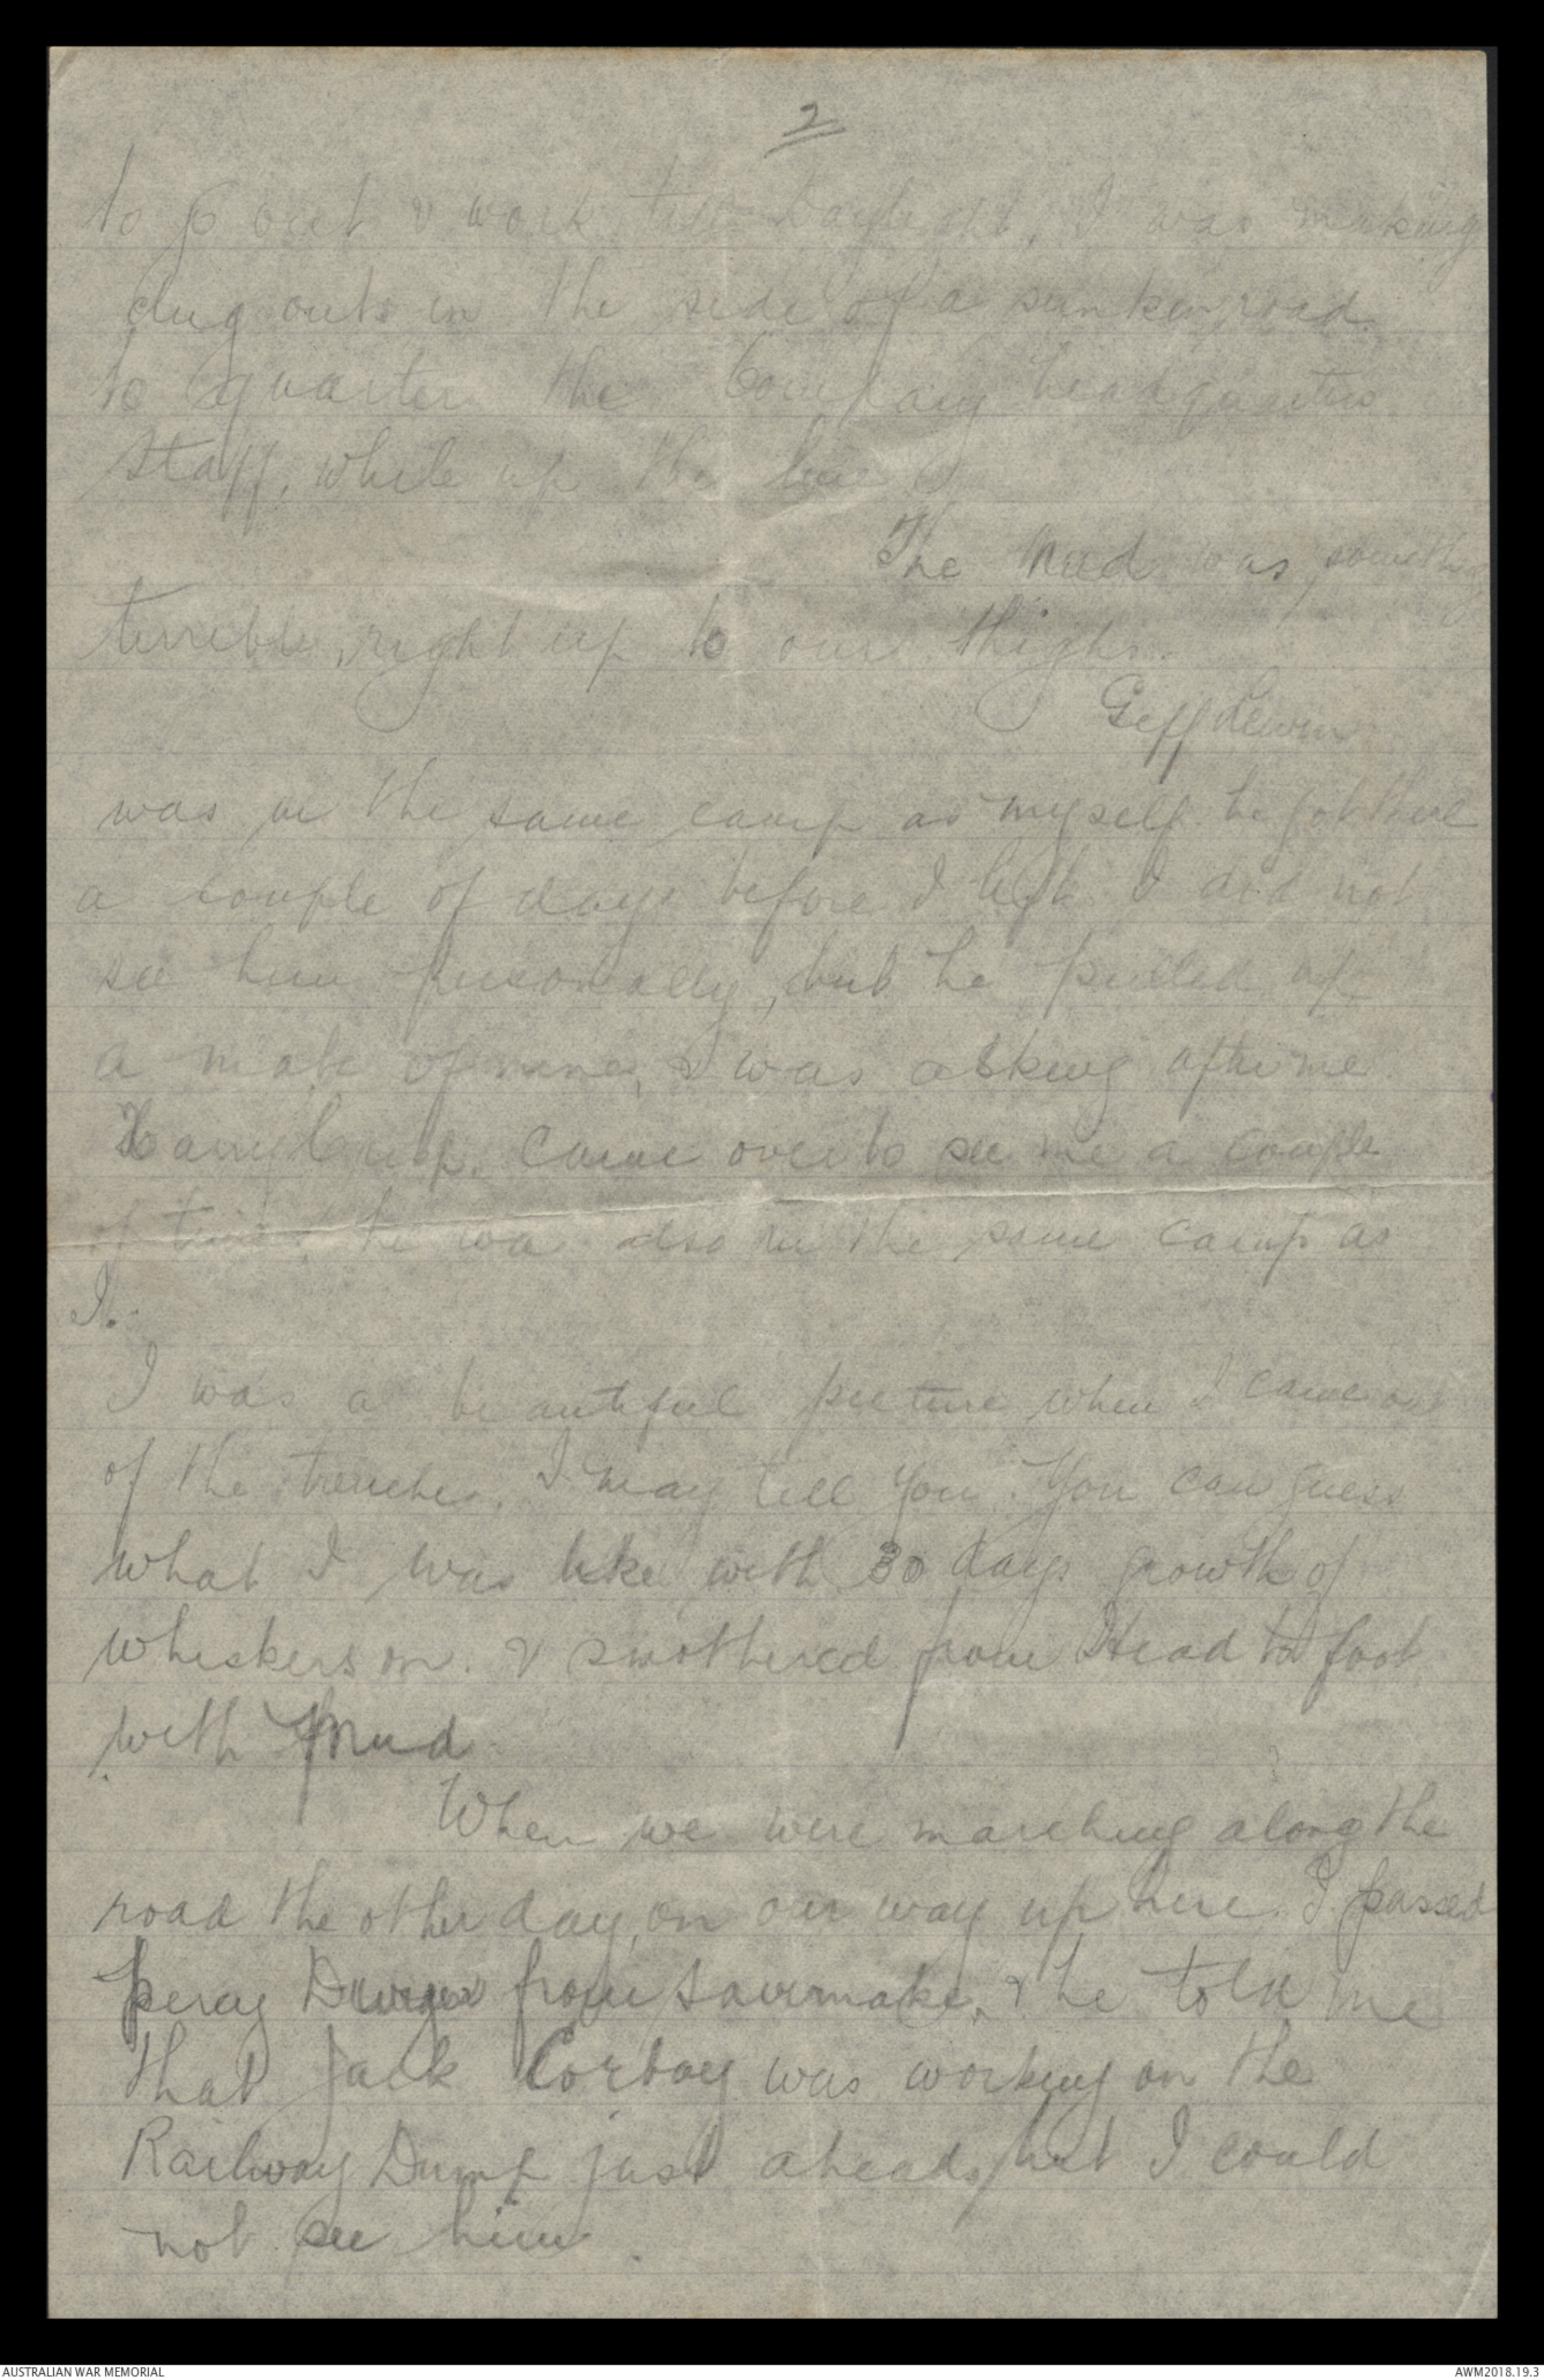 2
to go out & work till Daylight, I was making
dug outs in the side of a sunken road
to quarter the Company headquarters
Staff, while up the line
The Mud was something
terrible, right up to our thighs.
Geff
was in the same camp as myself he got there
a couple of days before I left I did not
see him personally, but he pulled up
a mate of mine, & was asking after me
Harry came over to see me a couple
of times he was also in the same camp as
I.
I was a beautiful picture when I came out
of the trenches, I may tell you. You can guess
what I was like with 30 days growth of
whiskers on. & smothered from Head to foot
with Mud
When we were marching along the
road the other day, on our way up here. I passed
Percy from & he told me
that Jack Corboy was working on the
Railway Dump just ahead, but I could
not see him.
AUSTRALIAN WAR MEMORIAL
AWM2018.19.3